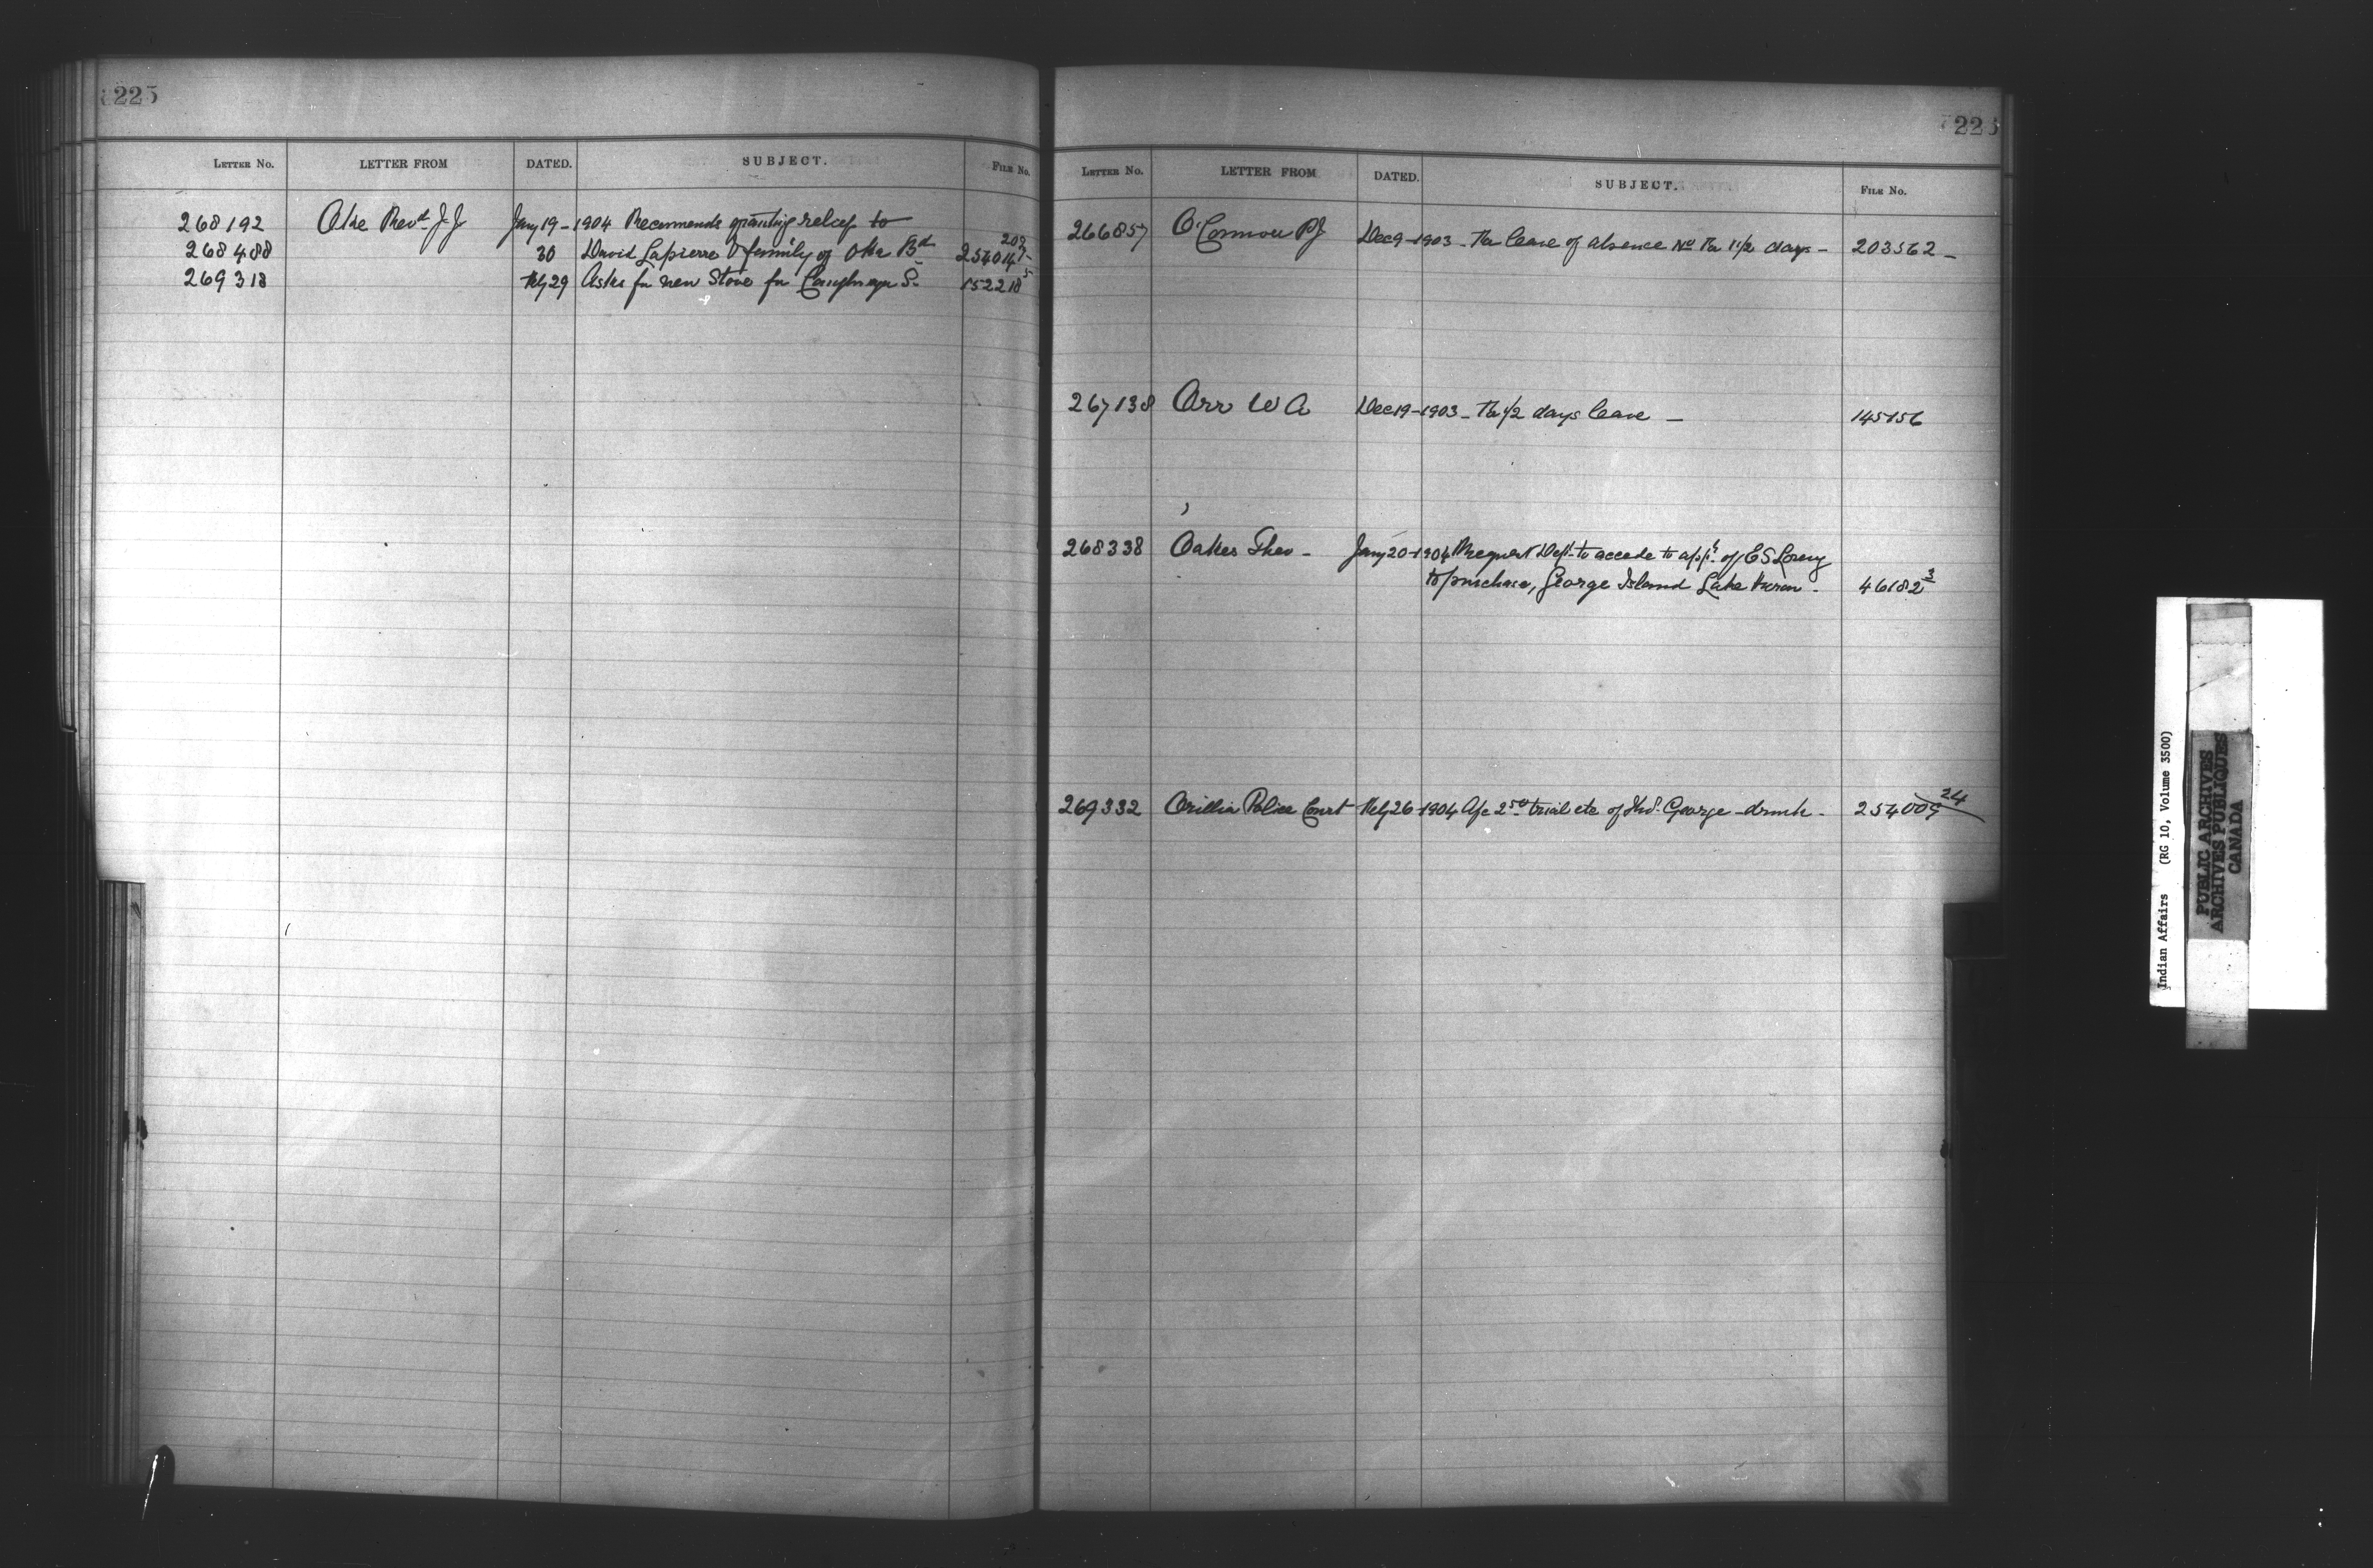 225
LETTER NO. LETTER FROM DATED. SUBJECT. FILE NO.
268192 Oke Revd J J Jany 19 - 1904 Recommends granting relief to
268488 30 David Lapierre & family of Oka Bd 254014
269318 Feby 29 Asks for new Stove for Caughnaga S. 152218
225
LETTER NO. LETTER FROM DATED. SUBJECT. FILE NO.
266857 O'Connor P J Dec 9 - 1903 - Re leave of absence 1 1/2 days - 203562 -
267138 Orr W A Dec 19 - 1903 - 1/2 days leave - 145156
268338 Oakes Theo - Jany 20 - 1904 Request Dept. to accede to appln. of E S
to purchase, George Island Lake Huron - 46182 3
269332 Orillia Police Court Feby 26 - 1904 A/c 2 50 trial etc of George - drunk - 254009 24
Indian Affairs (RG 10, Volume 3500)
PUBLIC ARCHIVES
ARCHIVES PUBLIQUES
CANADA